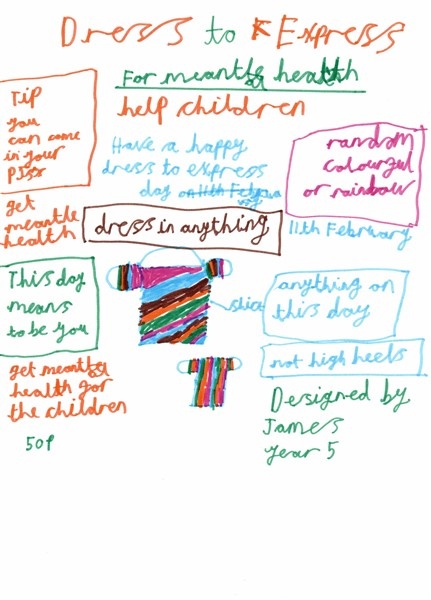 Dress to Express
For meantle health
help children
Tip
you
can come
in your
PJss
Have a happy
dress to express
day on 11th
random
colourful
or rainbow
get
meantle
health
dress in anything
11th February
This day
means
to be you
shirt
anything on
this day
not high heels
get meantle
health for
the children
50p
Designed by
James
year 5